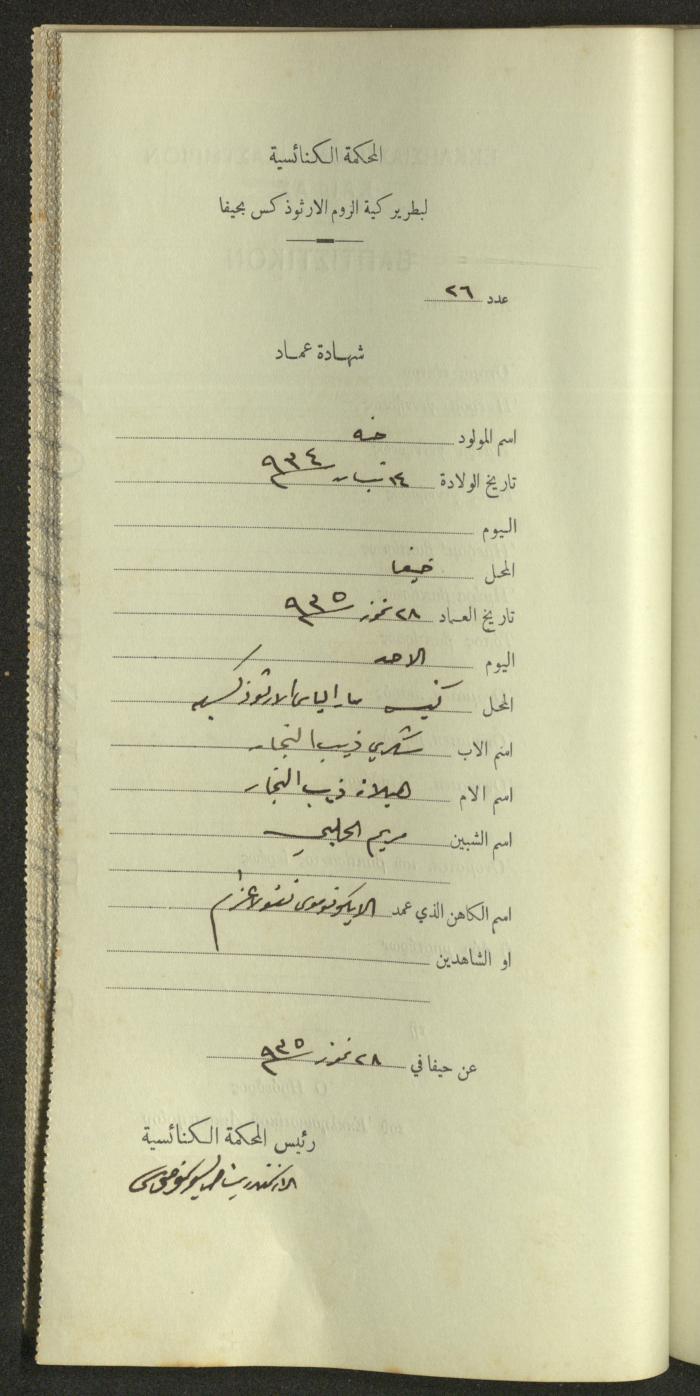 المحكمة الكنائسية
لبطريركية الروم الارثوذكس بحيفا
عدد ٢٦
شهادة عماد
اسم المولود حنه
تاريخ الولادة ١٤ نيسان ٩٣٤
اليوم
المحل حيفا
تاريخ العماد ٢٨ تموز ٩٣٥
اليوم الاحد
المحل كنيسة مار الياس الارثوذكسيه
اسم الاب شكري ذيب النجار
اسم الام هيلانه ذيب النجار
اسم الشبين مريم الحلبي
اسم الكاهن الذي عمد الايكونوموس نقولا
او الشاهدين
عن حيفا في ٢٨ تموز ٩٣٥
رئيس المحكمة الكنائسية